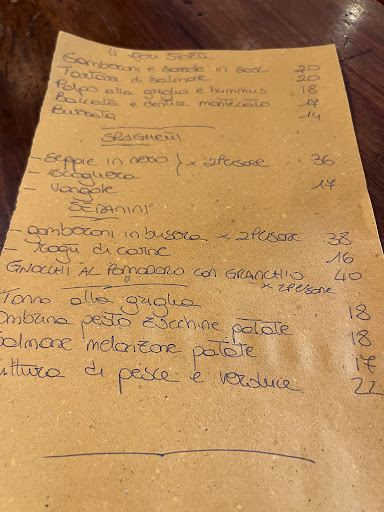 Gamberoni e sarde in saor 20
Tartara di salmone 20
Polpo alla griglia e hummus 18
Baccalà e dentice mantecato 17
Burrata 14
SPAGHETTI
- Seppie in nero } x 2 Persone 36
- Scogliera
- Vongole 17
SEDANINI
- gamberoni in busara x 2 Persone 38
- Ragù di carne 16
GNOCCHI AL POMODORO con GRANCHIO 40
x 2 Persone
Tonno alla griglia 18
ombrina pesto zucchine patate 18
salmone melanzane patate 17
ittura di pesce e verdure 22